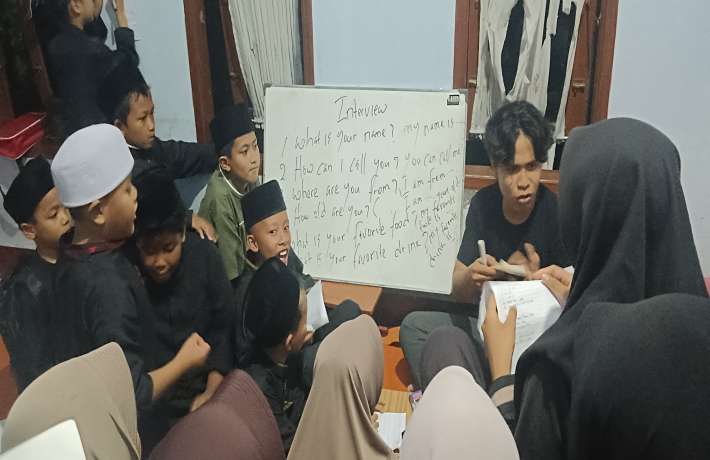 Interview
1 What is your name? my name is
2 How can I call you? you can call me
Where are you from? I am from
How old are you? I am
what is your favorite food? my favorite
is your favorite drink? my favorite
drink is